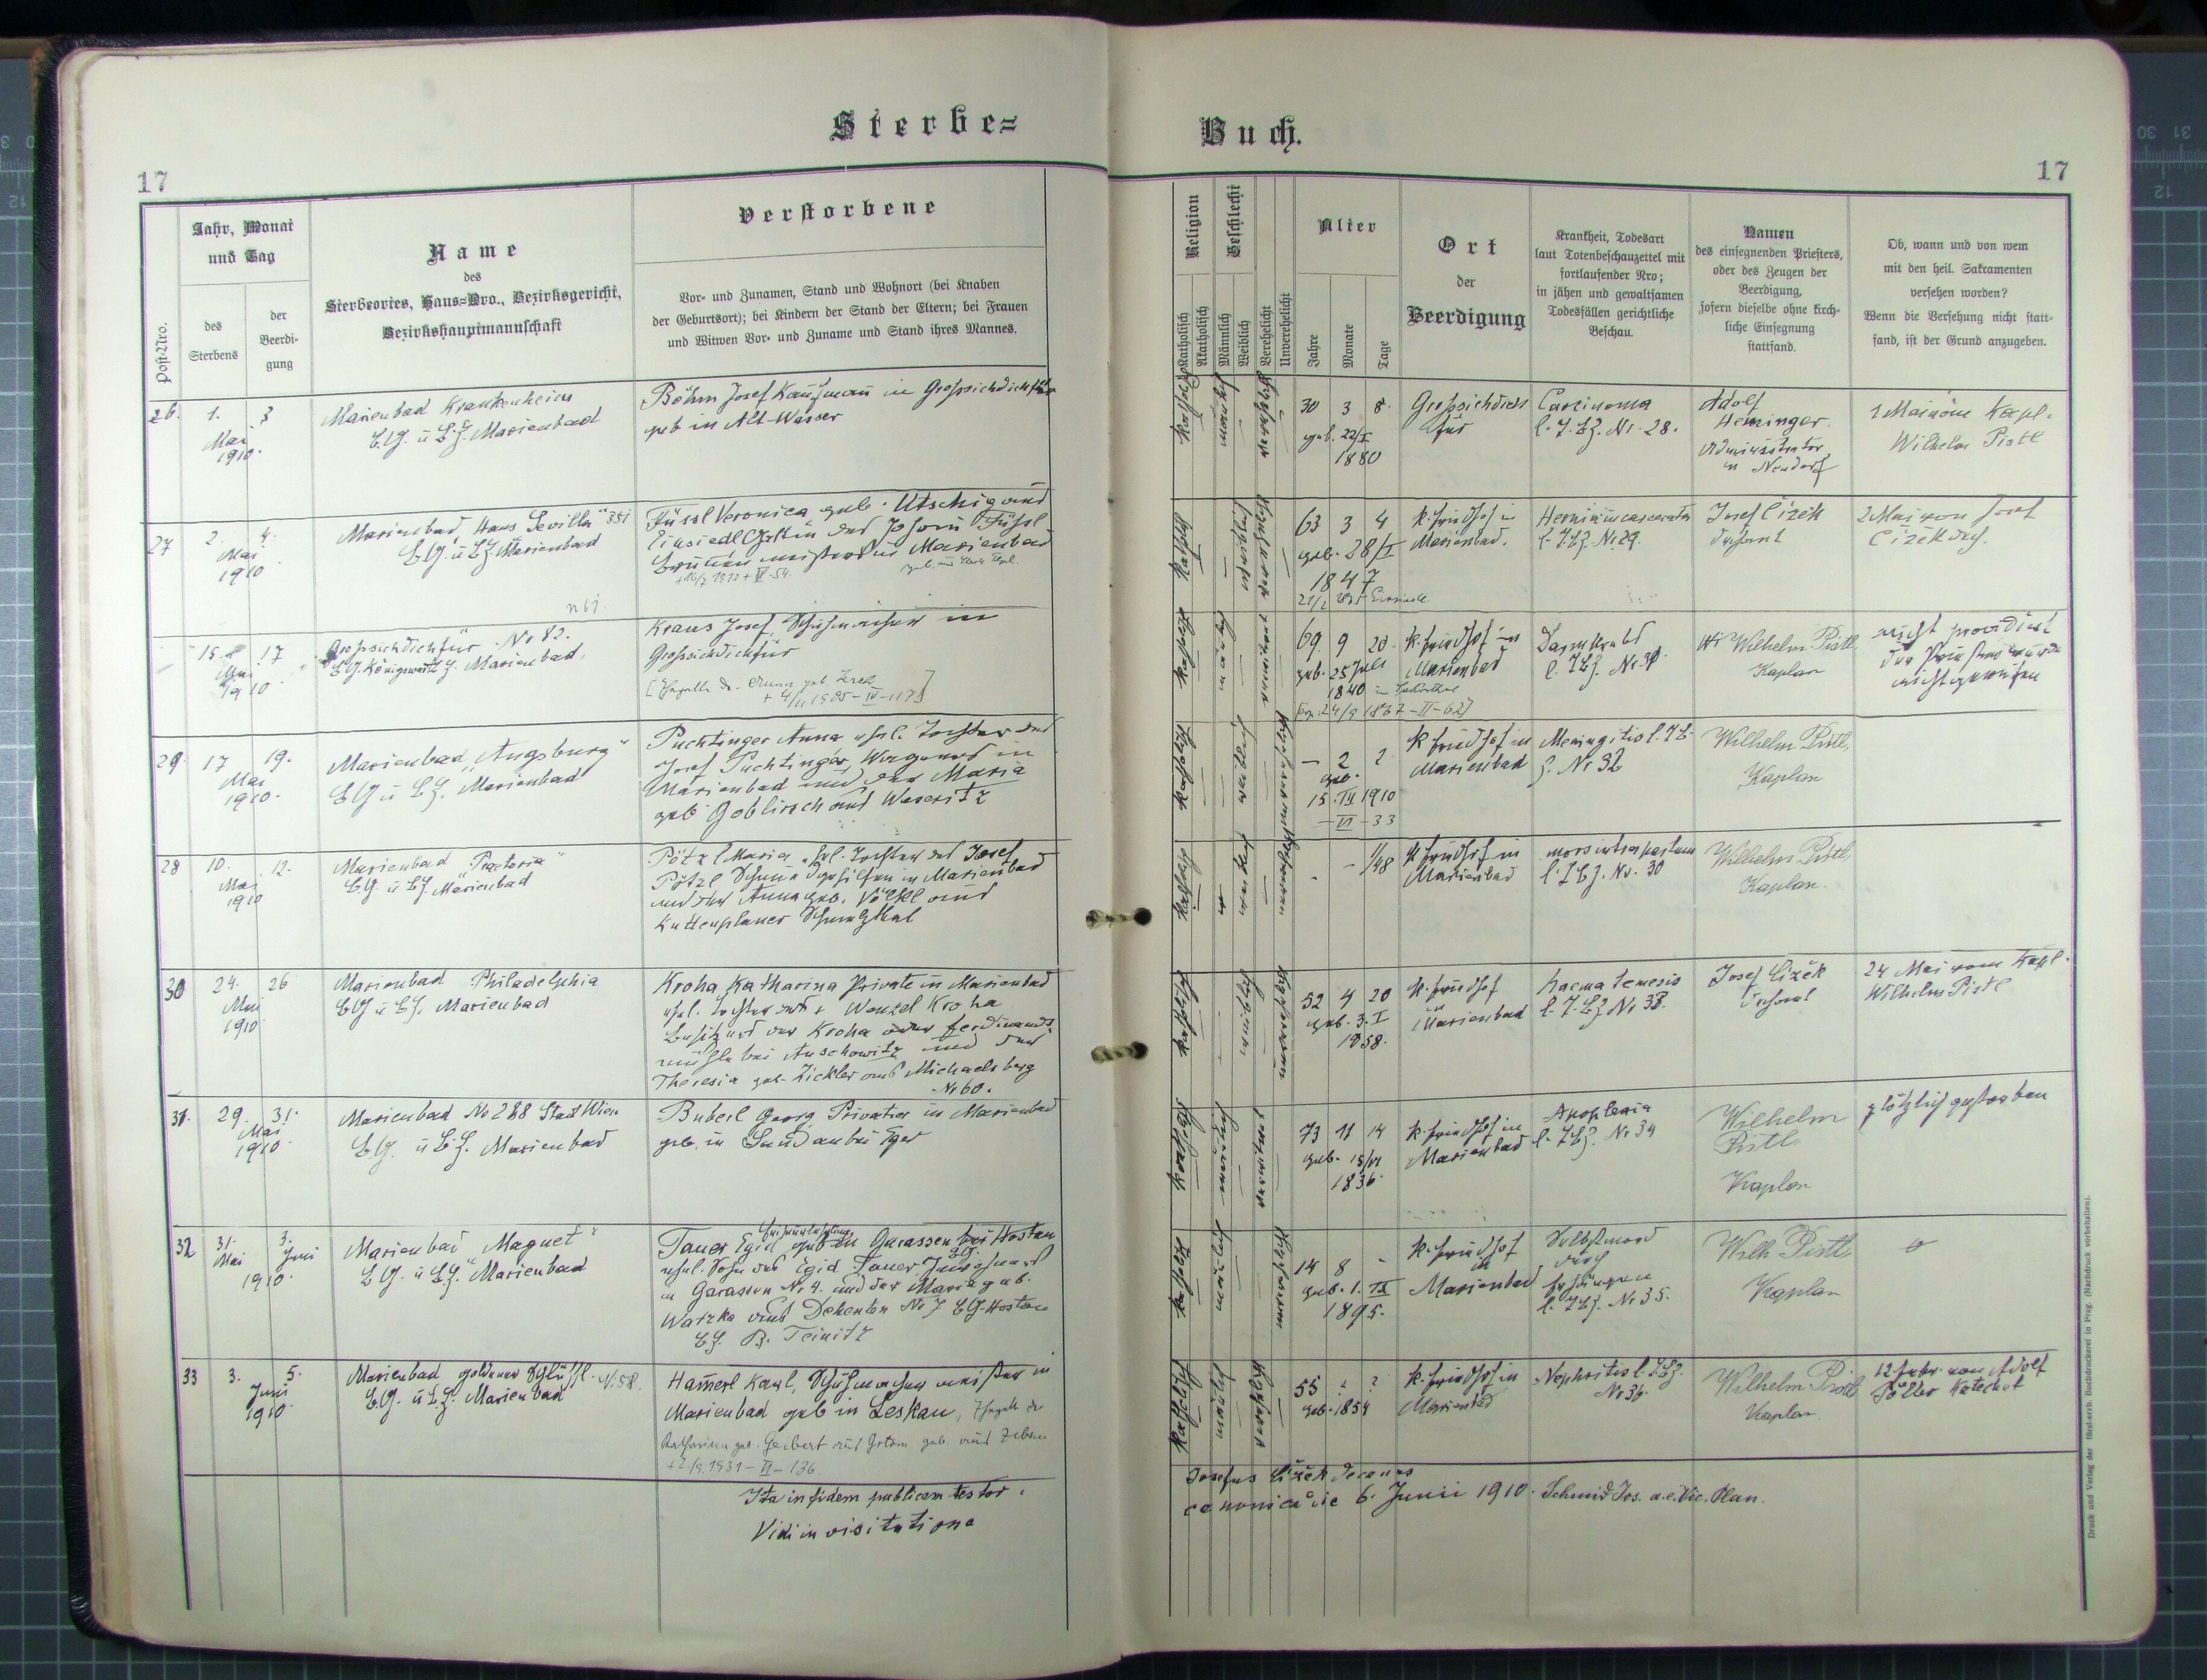 Sterbe=
Buch.
17
17
Post-Nro.
Jahr, Monat
und Tag
des
Sterbens
der
Beerdi-
gung
Name
des
Sterbeortes, Haus=Nro., Bezirksgericht,
Bezirkshauptmannschaft
Verstorbene
Vor- und Zunamen, Stand und Wohnort (bei Knaben
der Geburtsort); bei Kindern der Stand der Eltern; bei Frauen
und Witwen Vor- und Zuname und Stand ihres Mannes.
Religion
Katholisch
Akatholisch
Geschlecht
Männlich
Weiblich
Verehelicht
Unverehelicht
Alter
Jahre
Monate
Tage
Ort
der
Beerdigung
Krankheit, Todesart
laut Totenbeschauzettel mit
fortlaufender Nro;
in jähen und gewaltsamen
Todesfällen gerichtliche
Beschau.
Namen
des einsegnenden Priesters,
oder des Zeugen der
Beerdigung,
sofern dieselbe ohne kirch-
liche Einsegnung
stattfand.
Ob, wann und von wem
mit den heil. Sakramenten
versehen worden?
Wenn die Versehung nicht statt-
fand, ist der Grund anzugeben.
26. 1. 3
Mai
1910.
Marienbad Krankenheim
B.G. u B.H. Marienbad
Böhm Josef Kaufmann in Grossichdichfür
geb in Alt-Wasser
30 3 8.
geb. 22/I
1880
Grossichdich
für
Carcinoma
l. T.B.Z. Nr. 28.
Adolf
Heminger
Administrator
in Neudorf
1 Mai von Kapl.
Wilhelm Pistl
27 2. 4.
Mai
1910
Marienbad, Haus Sevilla" 351
B.G. u B.H Marienbad
Füssl Veronica geb. Utschig aus
Einsiedl Gattin des Johann Füssl
meisters in Marienbad
63 3 4
geb. 28/I
1847
k. Friedhof in
Marienbad.
Hernia incarcerata
l. T.B.Z. Nr. 29.
Josef Čižek
Dechant
2 Mai von Josef
Čižek Dech.
15. 17
Mai
1910
Grossichdichfür No 82.
B.G. Königswart B.H. Marienbad.
Kraus Josef, Schuhmacher in
Grossichdichfür
69 9 20
geb. 25 Juli
1840
k. Friedhof in
Marienbad
l. T.B.Z. Nr. 31
Wilhelm Pistl
Kaplan
nicht providiert
der Priester wurde
nicht gerufen
29. 17 19.
Mai
1910.
Marienbad "Augsburg"
B.G u B.H. Marienbad
Puchtinger Anna ehel. Tochter des
Josef Puchtinger, Wagners in
Marienbad und der Maria
geb Goblirsch aus Weseritz
- 2 2
geb.
15. III 1910
VI - 33
k Friedhof in
Marienbad
Meningitis l. T.B.
Z. Nr 32
Wilhelm Pistl,
Kaplan
28 10. 12.
Mai
1910
Marienbad "Praetoria"
B.G. u B.H. Marienbad
Pötzl Maria, ehel. Tochter des Josef
Pötzl Schmiedgehilfen in Marienbad
und der Anna geb. Völkl aus
Kuttenplaner Schmelzthal
- 1/48
k Friedhof in
Marienbad
mors intra partum
l. T.B.Z. Nr. 30
Wilhelm Pistl,
Kaplan.
30 24. 26
Mai
1910
Marienbad Philadelphia
B.G u B.H. Marienbad
Kroha Katharina Private in Marienbad
ehel. Tochter des + Wenzel Kroha
Besitzers der Kroha oder Ferdinands=
mühle bei Auschowitz und der
Theresia geb. Zickler aus Michaelsberg
Nr 60.
52 4 20
geb. 3. I
1858.
k. Friedhof
in
Marienbad
Haematemesis
l. T.B.Z Nr 33.
Josef Čižek
Dechant
24 Mai vom Kapl.
Wilhelm Pistl
31. 29. 31.
Mai
1910
Marienbad No 288 Stadt Wien
B.G. u B.H. Marienbad
Buberl Georg, Privatier in Marienbad
geb. in Sandau bei Eger
73 11 14
geb. 15/VI
1836.
k. Friedhof in
Marienbad
Apoplexia
l. T.B.Z. Nr 34
Wilhelm
Pistl
Kaplan
plötzlich gestorben
32 31. 3.
Mai Juni
1910.
Marienbad "Magnet"
B.G. u B.H. Marienbad
Friseurlehrling
Tauer Egid geb in Garassen bei Hostau
ehel. Sohn des Egid Tauer
in Garassen Nr 4. und der Maria geb.
Watzka aus Dehenten Nr 7 B.G. Hostau
B.H. B. Teinitz
14 8 -
geb. 1. IX
1895.
k. Friedhof
in
Marienbad
Selbstmord
durch
Erhängen
l. T.B.Z. Nr 35.
Wilh Pistl
Kaplan
33 3. 5.
Juni
1910.
Marienbad goldener Schlüssl. N. 58.
B.G. u B.H. Marienbad
Hamerl Karl, Schuhmachermeister in
Marienbad geb in Leskau, Ehegatte der
Katharina geb. Geibert
+2/9.1931 - VI - 136.
55 ? ?
geb. 1854
k. Friedhof in
Marienbad
Nephritis l. T.B.Z.
Nr 36.
Wilhelm Pistl
Kaplan
12 Febr. von Adolf
Pöller Katechet
Ita in fidem publicam testor.
Josefus Čižek Decanus
Vidi in visitatione
canonica die 6. Junii 1910. Schmid Jos. a.e. Vic. Plan.
Druck und Verlag der fürst-erzb. Buchdruckerei in Prag. (Nachdruck vorbehalten).